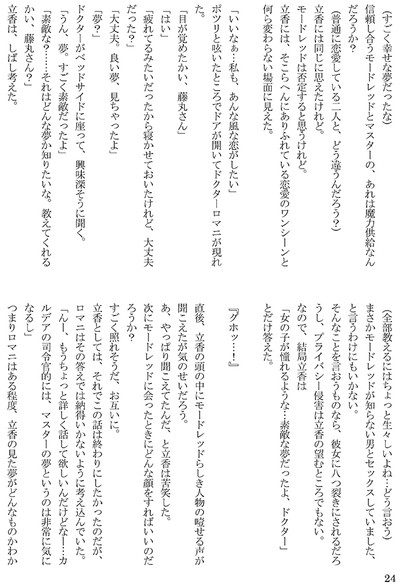 (すごく幸せな夢だったな)
信頼し合うモードレッドとマスターの、あれは魔力供給なん
だろうか?
(普通に恋愛している二人と、どう違うんだろう?)
立香には同じに思えたけれど。
モードレッドは否定すると思うけれど。
立香には、そこらへんにありふれている恋愛のワンシーンと
何ら変わらない場面に見えた。
「いいなぁ…私も、あんな風な恋がしたい」
ポツリと呟いたところでドアが開いてドクターロマニが現れ
た。
「目が覚めたかい、藤丸さん」
「はい」
「疲れてるみたいだったから寝かせておいたけれど、大丈夫
だった?」
「大丈夫。良い夢、見ちゃったよ」
「夢?」
「うん、夢。すごく素敵だったよ」
ドクターがベッドサイドに座って、興味深そうに聞く。
「素敵な?……それはどんな夢か知りたいな。教えてくれる
かい、藤丸さん?」
立香は、しばし考えた。
(全部教えるにはちょっと生々しいよね…どう言おう)
まさかモードレッドが知らない男とセックスしていました、
と言うわけにもいかない。
そんなことを言おうものなら、彼女に八つ裂きにされるだろ
うし、プライバシー侵害は立香の望むところでもない。
なので、結局立香は
「女の子が憧れるような…素敵な夢だったよ、ドクター」
とだけ答えた。
『グホッ…!』
直後、立香の頭の中にモードレッドらしき人物の噎せる声が
聞こえたが気のせいだろう。
あ、やっぱり聞こえてたんだ、と立香は苦笑した。
次にモードレッドに会ったときにどんな顔をすればいいのだ
ろうか?
すごく照れそうだ、お互いに。
立香としては、それでこの話は終わりにしたかったのだが、
ロマニはその答えでは納得いかないように考え込んでいた。
「んー、もうちょっと詳しく話して欲しいんだけどなー…カ
ルデアの司令官的には、マスターの夢というのは非常に気に
なるし」
つまりロマニはある程度、立香の見た夢がどんなものかわか
24